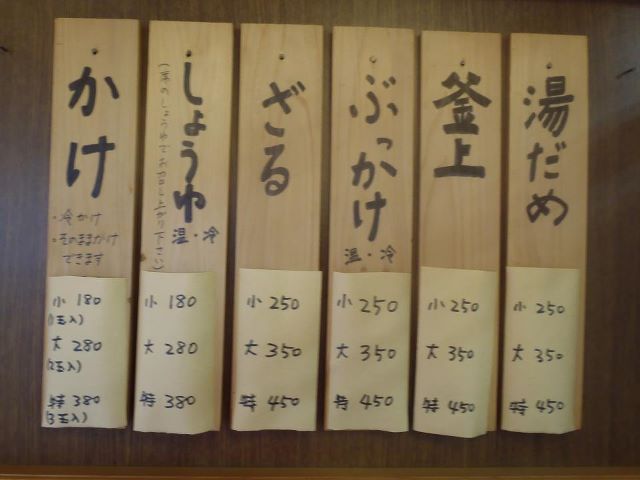 かけ
・冷かけ
・そのままかけ
できます
小 180
(1玉入)
大 280
(2玉入)
特 380
(3玉入)
しょうゆ
のしょうゆでお召し上がり下さい)
温・冷
小 180
大 280
特 380
ざる
小 250
大 350
特 450
ぶっかけ
温・冷
小 250
大 350
特 450
釜上
小 250
大 350
特 450
湯だめ
小 250
大 350
特 450